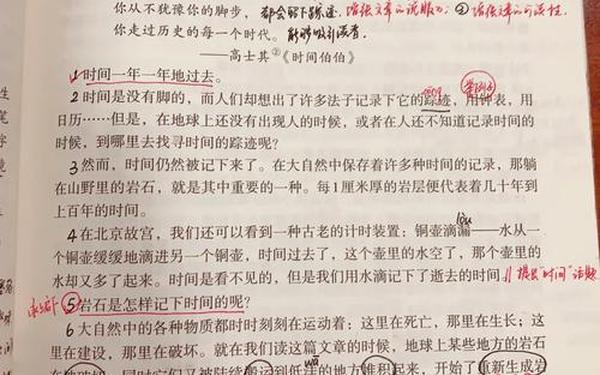 你从不犹豫你的脚步,
增强文章的说服力; ② 增强文章的可读性。
你走过历史的每一个时代。 能够吸引读者。
——高士其②《时间伯伯》
1 时间一年一年地过去。
2 时间是没有脚的,而人们却想出了许多法子记录下它的踪迹,用钟表,用
日历……但是,在地球上还没有出现人的时候,或者在人还不知道记录时间的
时候,到哪里去找寻时间的踪迹呢?
3 然而,时间仍然被记下来了。在大自然中保存着许多种时间的记录,那躺
在山野里的岩石,就是其中重要的一种。每1厘米厚的岩层便代表着几十年到
上百年的时间。
4 在北京故宫,我们还可以看到一种古老的计时装置:铜壶滴漏——水从一
个铜壶缓缓地滴进另一个铜壶,时间过去了,这个壶里的水空了,那个壶里的
水却又多了起来。时间是看不见的,但是我们用水滴记下了逝去的时间。 // 提出“时间”话题
承上启下 5 岩石是怎样记下时间的呢?
6 大自然中的各种物质都时时刻刻在运动着:这里在死亡,那里在生长;这
里在建设,那里在破坏。就在我们读这篇文章的时候,地球上某些地方的岩石
在被破坏,同时它们又被陆续搬运到低洼的地方堆积起来,开始了重新生成岩